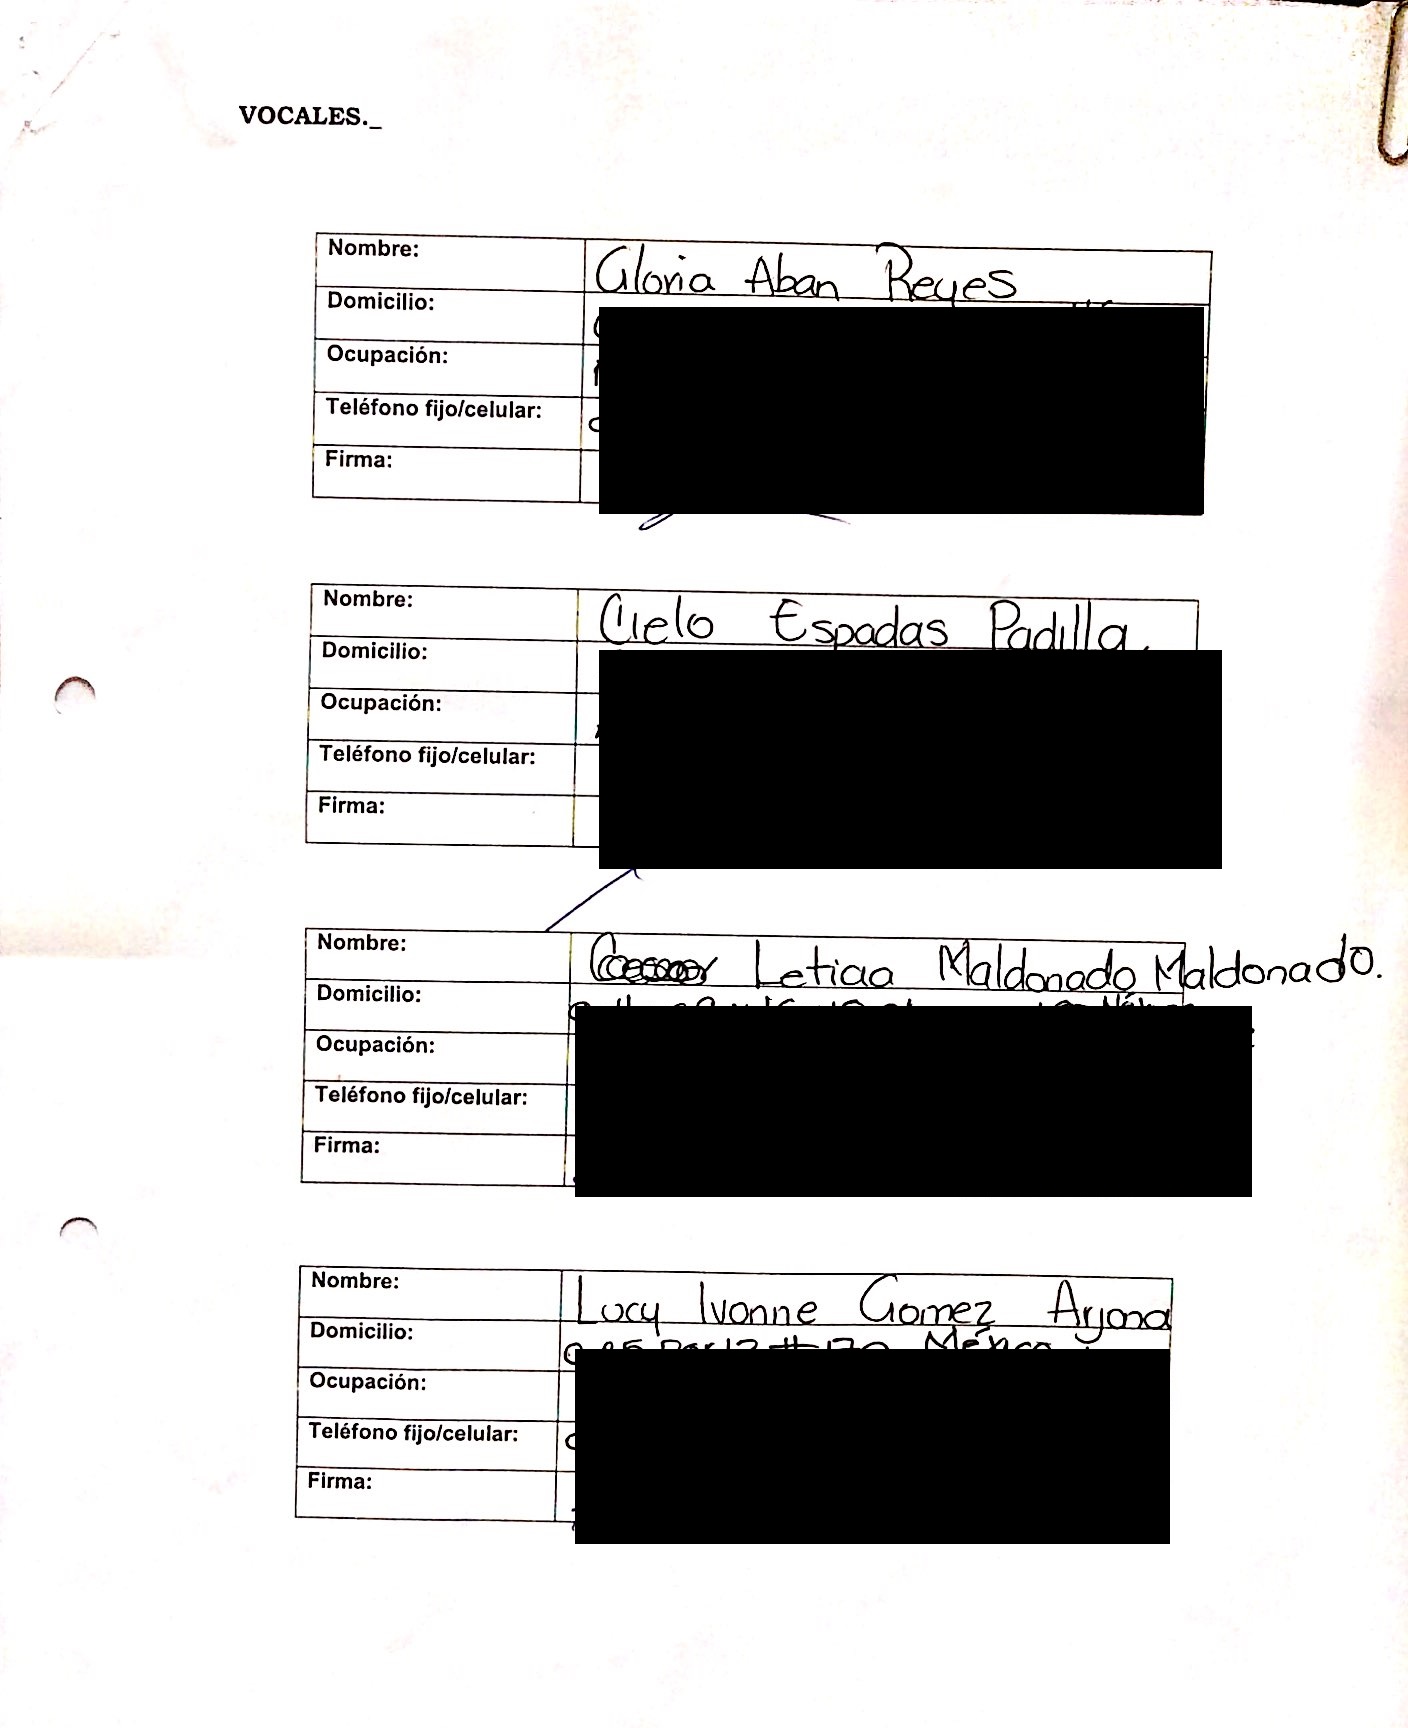 VOCALES._
Nombre: Gloria Aban Reyes
Domicilio:
Ocupación:
Teléfono fijo/celular:
Firma:
Nombre: Cielo Espadas Padilla.
Domicilio:
Ocupación:
Teléfono fijo/celular:
Firma:
Nombre: Leticia Maldonado Maldonado.
Domicilio:
Ocupación:
Teléfono fijo/celular:
Firma:
Nombre: Lucy Ivonne Gomez Arjona
Domicilio:
Ocupación:
Teléfono fijo/celular:
Firma: